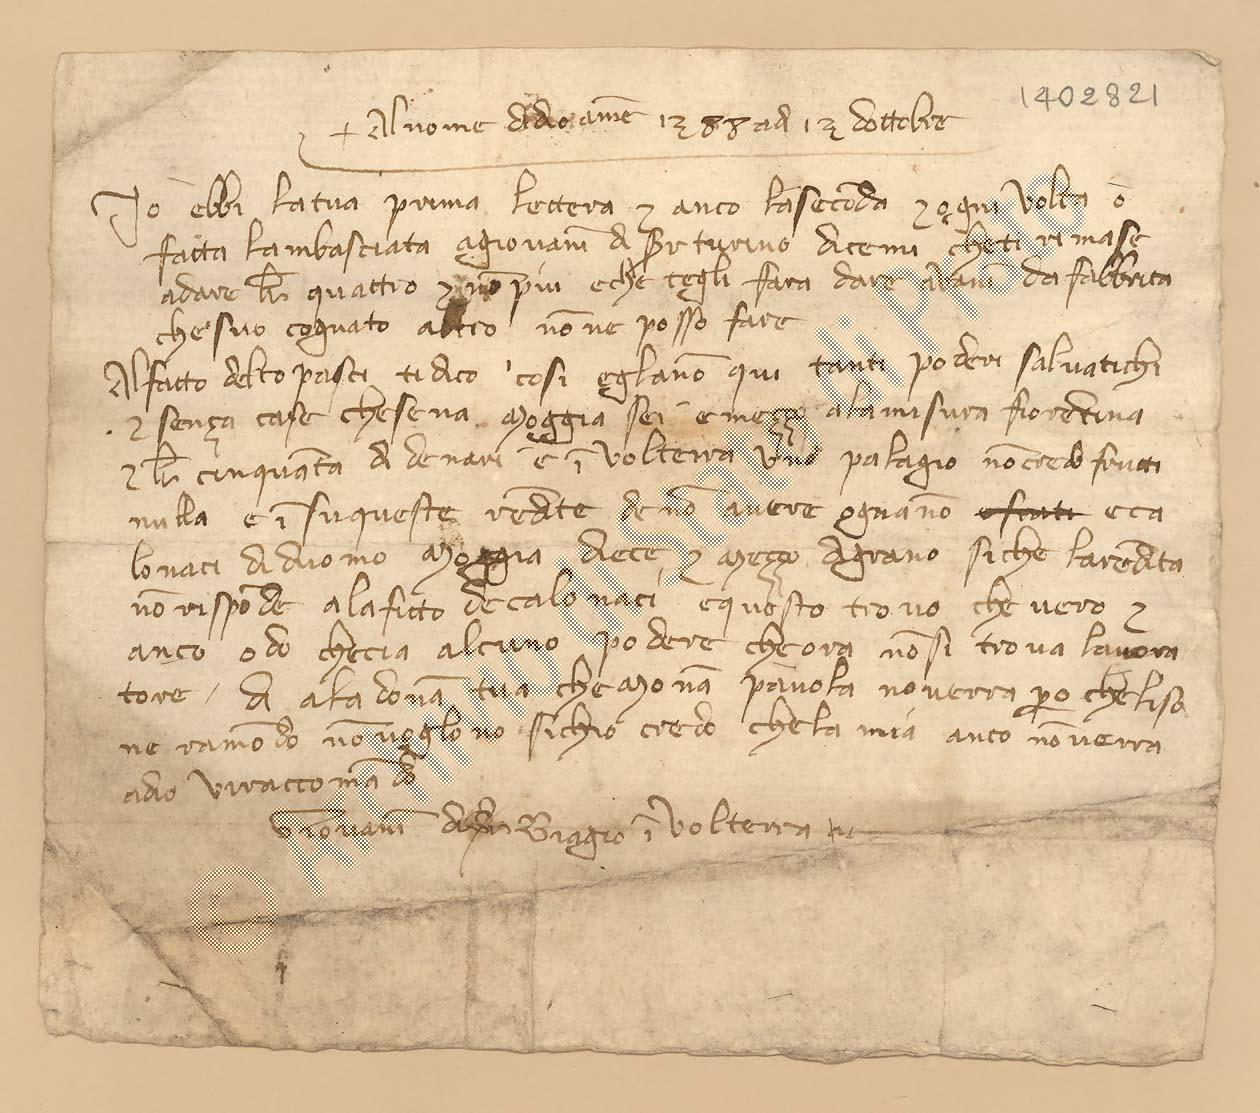 1402821
+ Al nome di dio amē 1388 a dì 13 dottobre
Io ebbi latua prima lettera ⁊ anco lasecōda ⁊ ogni volta ō
fatta lambasciata agiovanī di Sr turino dicemi cheti rimase
adare lb̄r quattro ⁊ nō piu eche tegli fara dare Avanī da fabbrica
che suo cognato altro nō ne posso fare
Al fatto delto pasci ti dico cosi eglanō qui tanti poderi salvatichi
⁊ sença case chesena moggia sei emeçço alamisura fiorētina
⁊ lb̄r cinquāta di denari e ī volterra uno palagio nō credo frutti
nulla e ī suqueste rēdite denō avere ognanō eca
lonaci di duomo moggia diece ⁊ meçço digrano siche larēdita
nō rispōde alafitto decalonaci equesto trovo che vero ⁊
anco odo checia alcuno podere cheora nōsi trova lavora
tore / di ala donā tua che monā pavola noverra pero cheliso
ne ramōdo nō voglono sichio credo chela mia anco nōverra
adio viraccomādo
Giovanī di Sr Biagio ī volterra
© Archivio di Stato di Prato